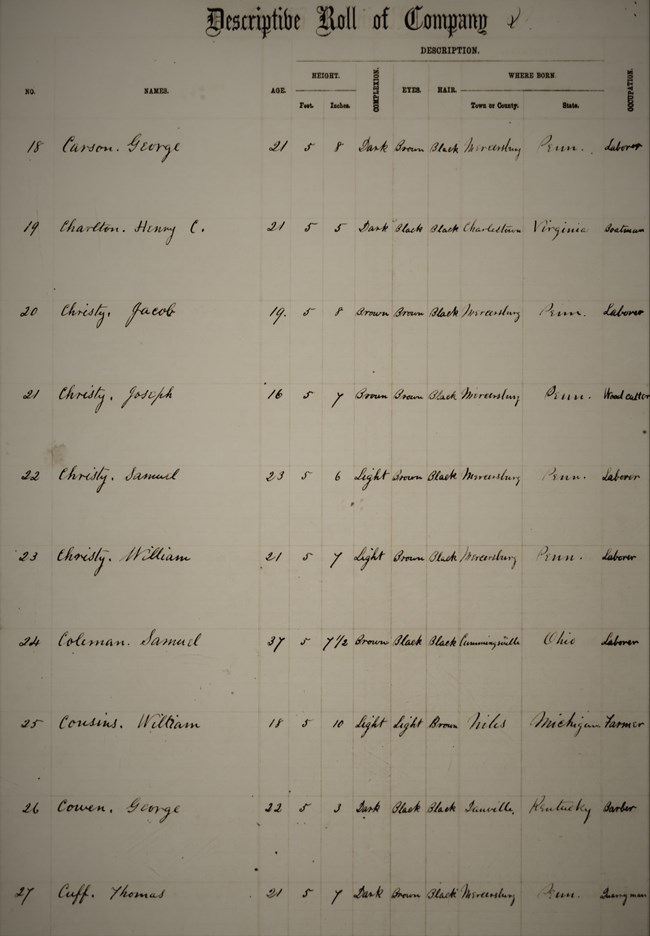 Descriptive Roll of Company
DESCRIPTION.
HEIGHT. WHERE BORN.
NO. NAMES. AGE. COMPLEXION. EYES. HAIR. OCCUPATION.
Feet. Inches. Town or County. State.
18 Carson. George 21 5 8 Dark Brown Black Mercersburg Penn. Laborer
19 Charlton. Henry C. 21 5 5 Dark Black Black Charlestown Virginia Boatman
20 Christy. Jacob 19. 5 8 Brown Brown Black Mercersburg Penn. Laborer
21 Christy. Joseph 16 5 7 Brown Brown Black Mercersburg Penn. Wood cutter
22 Christy. Samuel 23 5 6 Light Brown Black Mercersburg Penn. Laborer
23 Christy. William 21 5 7 Light Brown Black Mercersburg Penn. Laborer
24 Coleman. Samuel 37 5 7 1/2 Brown Black Black Cummingsville Ohio Laborer
25 Cousins. William 18 5 10 Light Light Brown Niles Michigan Farmer
26 Cowen. George 22 5 3 Dark Black Black Danville. Kentucky Barber
27 Cuff. Thomas 21 5 7 Dark Brown Black Mercersburg Penn. Quarryman